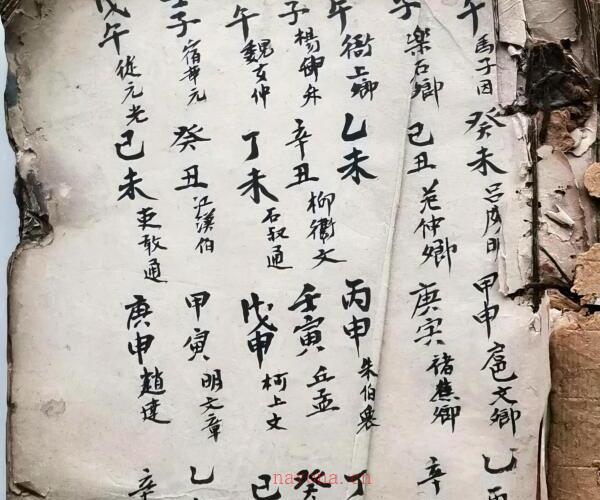 午 馬子因 癸未 呂 明 甲申 扈文卿 乙
子 樂石卿 己丑 范仲卿 庚寅 諸蕉卿 辛
午 衙上卿 乙未 丙申 朱伯衆 丁
子 楊仰 辛丑 柳衢文 壬寅 丘孟 癸
午 魏玄仲 丁未 石叔通 戊申 柯上文 己
子 宿希元 癸丑 江漢伯 甲寅 明文章 乙
戊午 從元光 己未 吏敢通 庚申 趙達 辛
nayona.cn